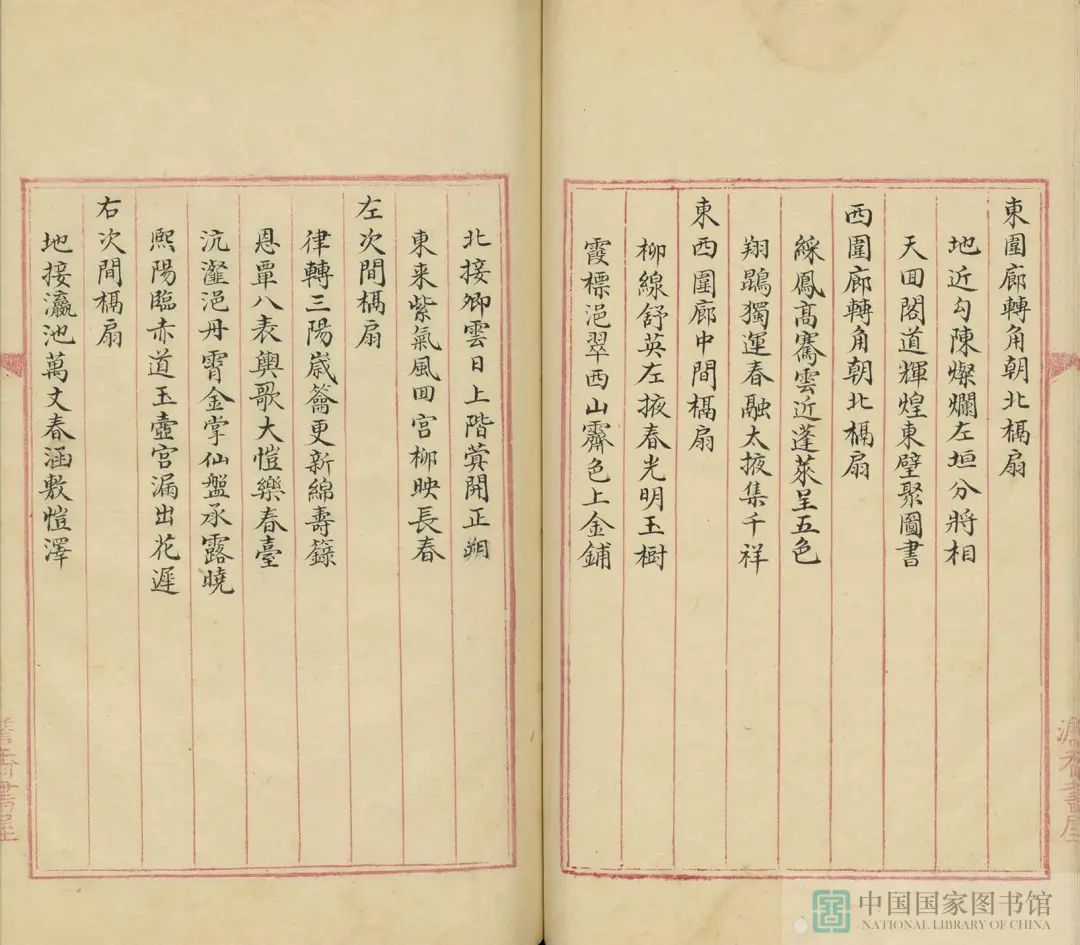 東圍廊轉角朝北槅扇
地近勾陳燦爛左垣分將相
天回閣道輝煌東壁聚圖書
西圍廊轉角朝北槅扇
綵鳳高騫雲近蓬萊呈五色
翔鵾獨運春融太掖集千祥
東西圍廊中間槅扇
柳線舒英左掖春光明玉樹
霞標浥翠西山霽色上金鋪
北接卿雲日上階蓂開正朔
東来紫氣風回宮柳映長春
左次間槅扇
律轉三陽歲籥更新綿壽籙
恩覃八表輿歌大愷樂春臺
沆瀣浥丹霄金掌仙盤承露曉
熙陽臨赤道玉壺宮漏出花遲
右次間槅扇
地接瀛池萬文春涵敷愷澤
澹香書屋
中国国家图书馆
NATIONAL LIBRARY OF CHINA